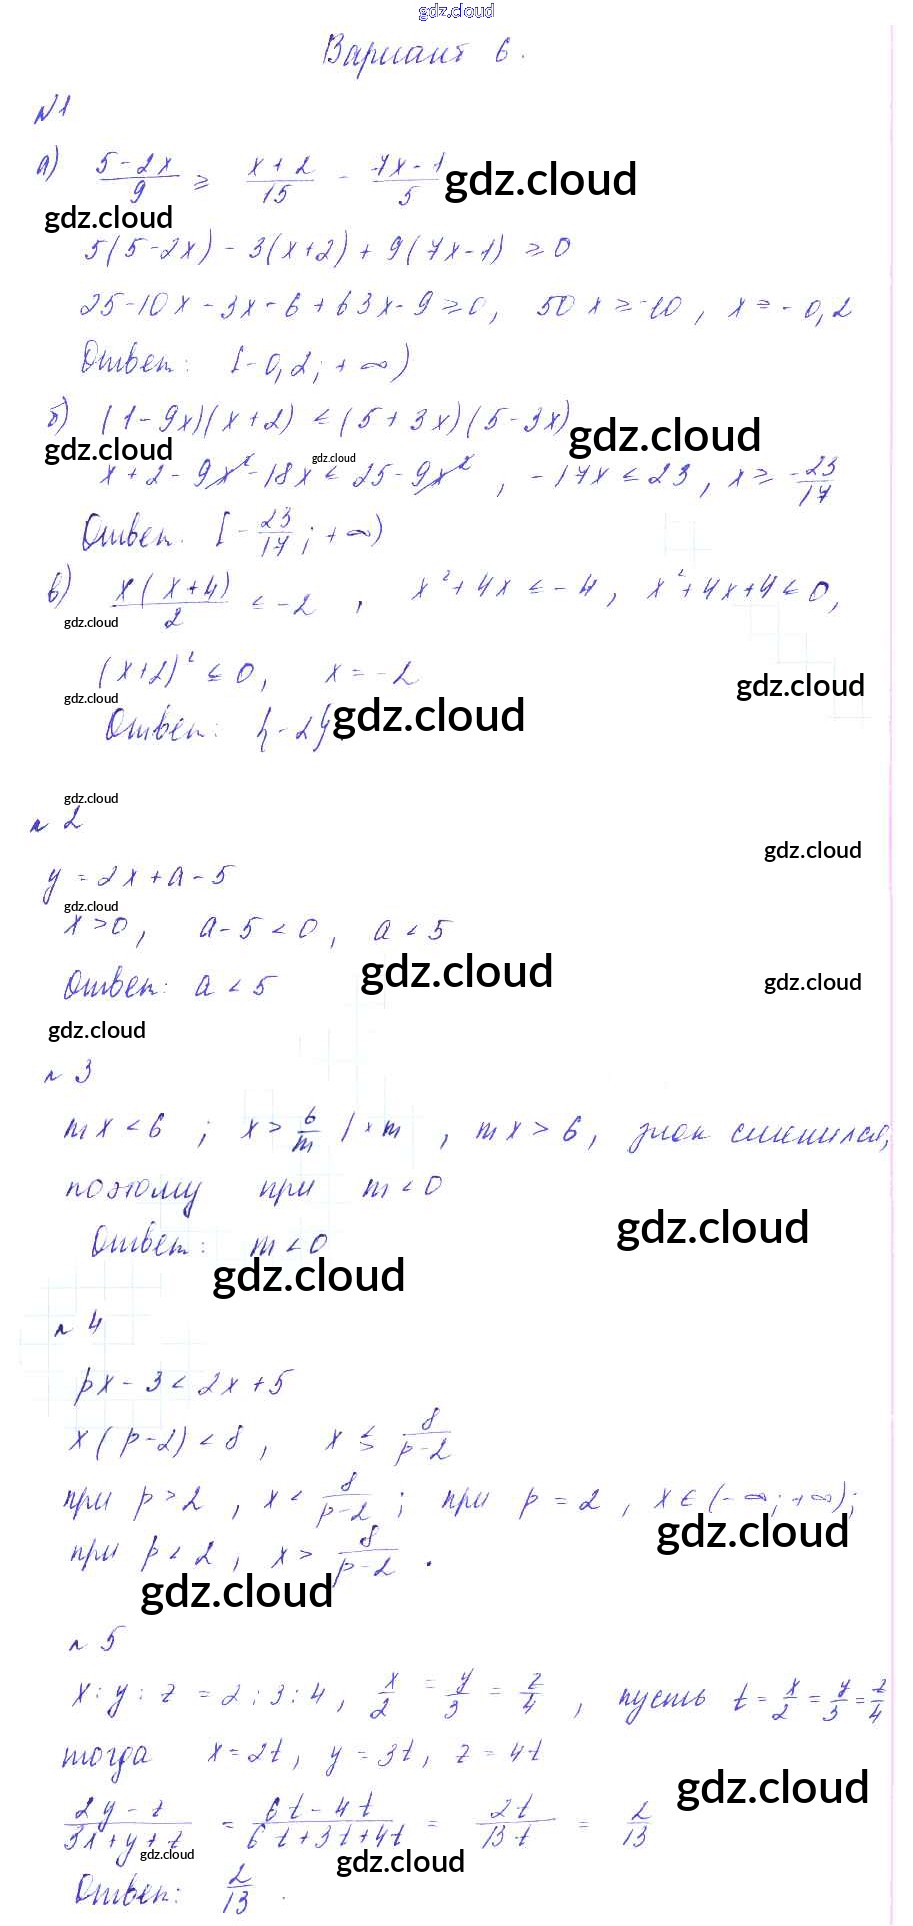 gdz.cloud
Вариант 6.
№1
а) (5-2x)/9 ≥ (x+2)/15 - (7x-1)/5 gdz.cloud
gdz.cloud
5(5-2x) - 3(x+2) + 9(7x-1) ≥ 0
25-10x-3x-6+63x-9≥0, 50x≥-10, x≥-0,2
Ответ: [-0,2; +∞)
б) (1-9x)(x+2) ≤ (5+3x)(5-3x) gdz.cloud
gdz.cloud gdz.cloud
x+2-9x²-18x ≤ 25-9x², -17x ≤ 23, x ≥ -23/17
Ответ. [-23/17; +∞)
в) x(x+4)/2 ≤ -2, x²+4x ≤ -4, x²+4x+4≤0,
gdz.cloud
(x+2)² ≤ 0, x = -2
gdz.cloud gdz.cloud
Ответ: {-2}. gdz.cloud
gdz.cloud
№2
gdz.cloud
y = 2x + a - 5
gdz.cloud
x>0, a-5<0, a<5
Ответ: a<5 gdz.cloud gdz.cloud
gdz.cloud
№3
mx<6; x > 6/m |·m, mx>6, знак сменился,
поэтому при m<0
Ответ: m<0 gdz.cloud
gdz.cloud
№4
px-3<2x+5
x(p-2)<8, x ≶ 8/(p-2)
при p>2, x < 8/(p-2); при p=2, x∈(-∞;+∞);
gdz.cloud
при p<2, x > 8/(p-2).
gdz.cloud
№5
x:y:z = 2:3:4, x/2 = y/3 = z/4, пусть t = x/2 = y/3 = z/4
тогда x=2t, y=3t, z=4t
gdz.cloud
(2y-z)/(3x+y+z) = (6t-4t)/(6t+3t+4t) = 2t/13t = 2/13
gdz.cloud gdz.cloud
Ответ: 2/13.